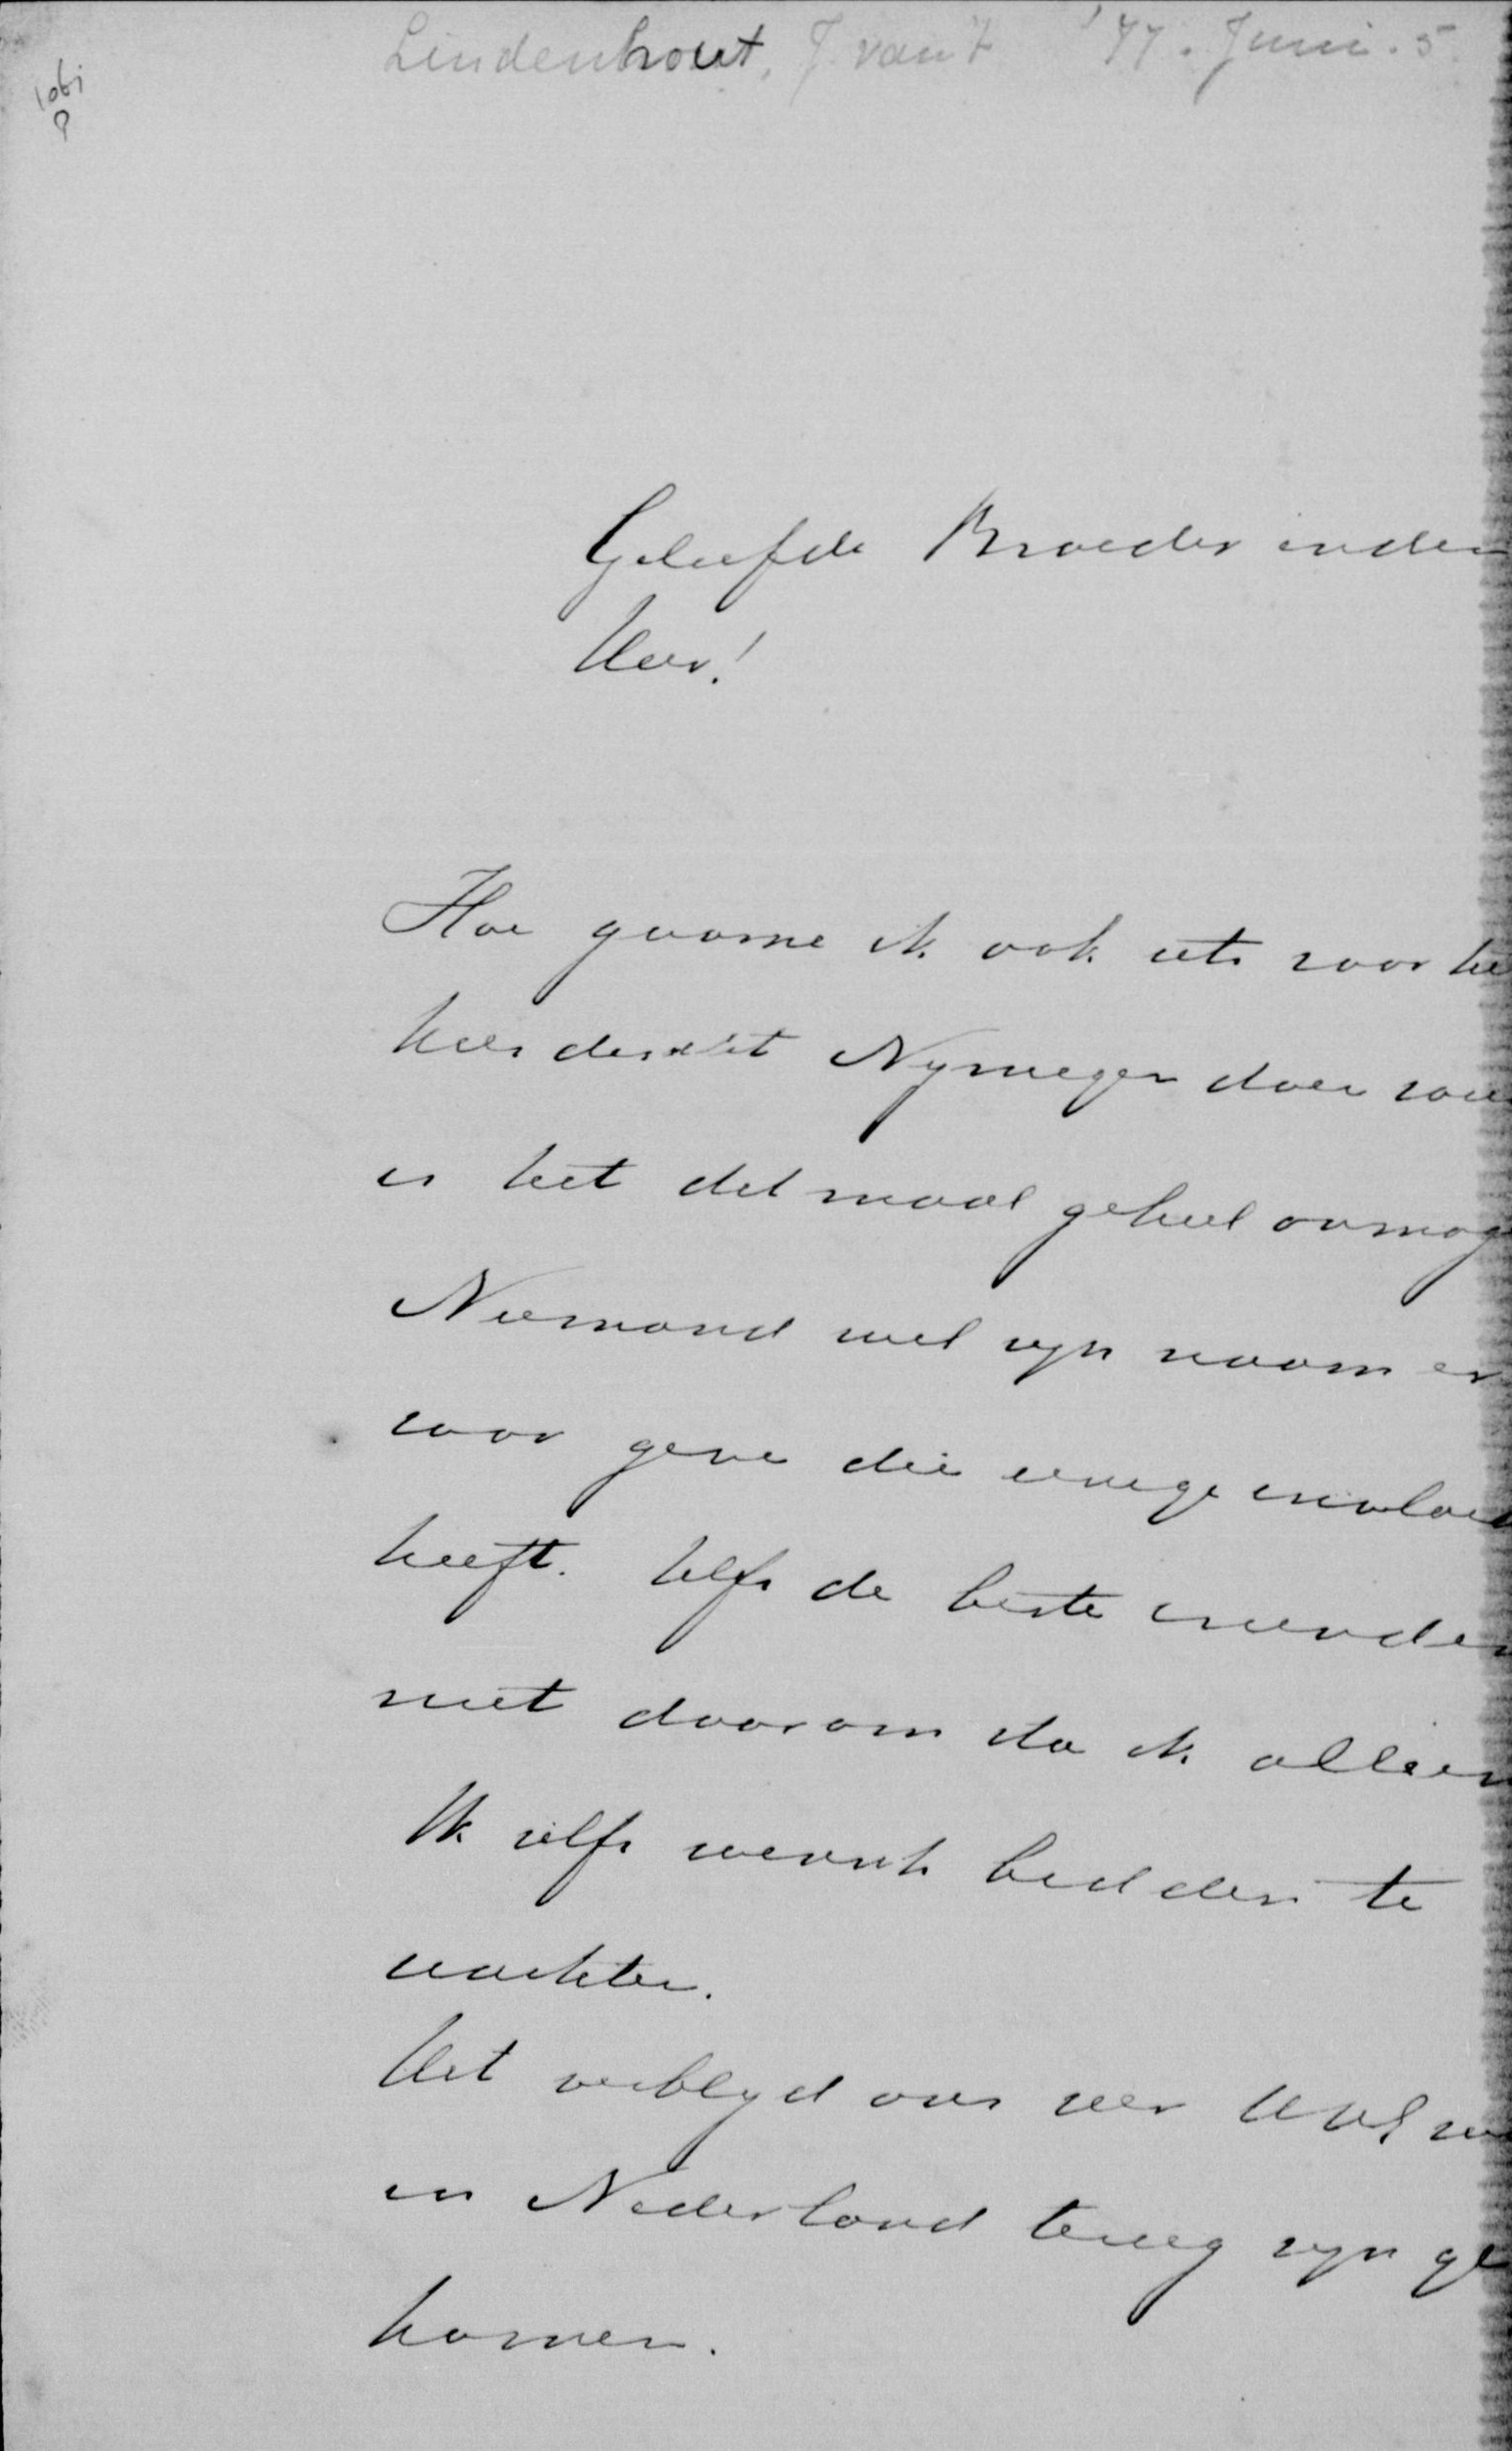 Lindenhout, J. van 't '77. Juni. 5
Geliefde Broeder in den
Heer!
Hoe gaarne ik ook iets voor het
kiesdistrict Nymegen doen
is het ditmaal geheel onmog
Niemand wil zyn naam er
voor geve die eenige invloed
heeft. Zelfs de beste vrienden
niet daarom sta ik alleen
Ik zelfs wensch bidden te
wachten.
Het verblyd ons zeer
in Nederland terug zyn ge
komen.